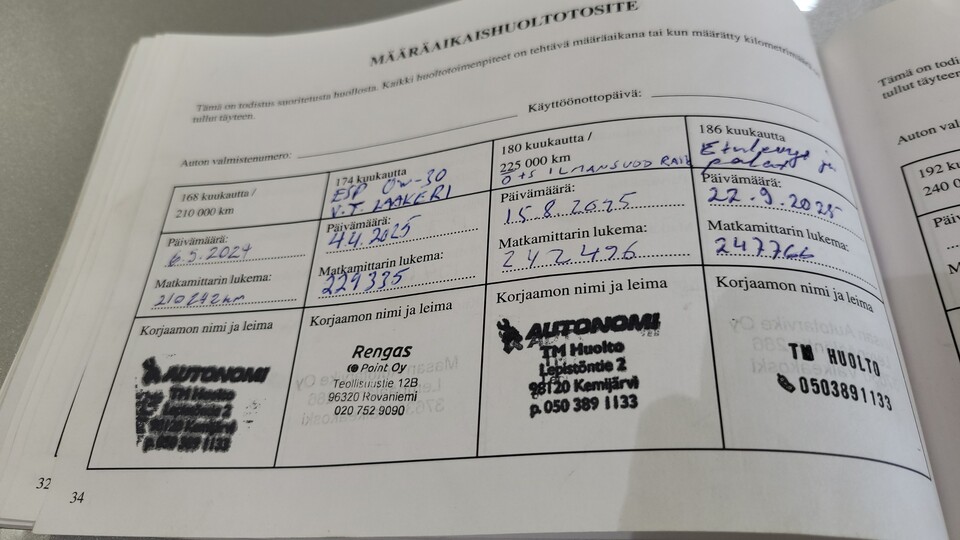 MÄÄRÄAIKAISHUOLTOTOSITE
Tämä on todistus suoritetusta huollosta. Kaikki huoltotoimenpiteet on tehtävä määräaikana tai kun määrätty
tullut täyteen.
Auton valmistenumero:
Käyttöönottopäivä:
168 kuukautta /
210 000 km
Päivämäärä:
6.5.2024
Matkamittarin lukema:
210242km
Korjaamon nimi ja leima
AUTONOMI
TM Huolto
Lepistöntie 2
98120 Kemijärvi
p. 050 389 1133
174 kuukautta
ESP 0W-30
V.T. LAAKERI
Päivämäärä:
4.4.2025
Matkamittarin lukema:
229335
Korjaamon nimi ja leima
Rengas
Point Oy
Teollisuustie 12B
96320 Rovaniemi
020 752 9090
180 kuukautta /
225 000 km
Ö+S ILMANSUOD RAI
Päivämäärä:
15.8.2025
Matkamittarin lukema:
242496
Korjaamon nimi ja leima
AUTONOMI
TM Huolto
Lepistöntie 2
98120 Kemijärvi
p. 050 389 1133
186 kuukautta
Etulevyt ja
palat
Päivämäärä:
22.9.2025
Matkamittarin lukema:
247766
Korjaamon nimi ja leima
TM HUOLTO
0503891133
32
34
Tämä on
tullut täyteen
Auton
192
240